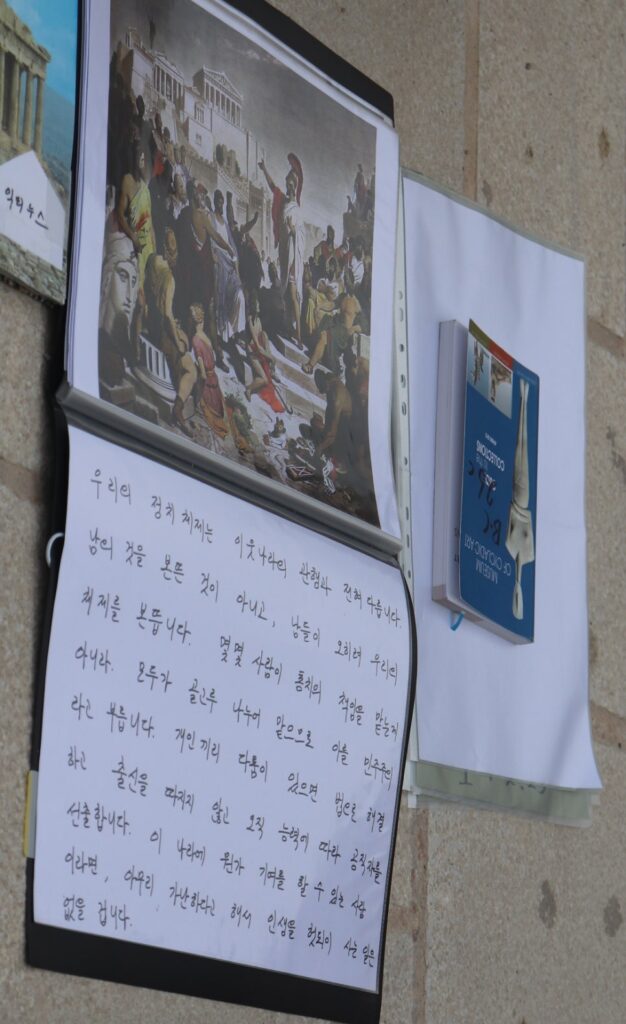 익티누스
우리의 정치 체제는 이웃나라의 관행과 전혀 다릅니다.
남의 것을 본뜬 것이 아니고, 남들이 오히려 우리의
체제를 본뜹니다. 몇몇 사람이 통치의 책임을 맡는게
아니라. 모두가 골고루 나누어 맡으므로 이를 민주주의
라고 부릅니다. 개인끼리 다툼이 있으면 법으로 해결
하고 출신을 따지지 않고 오직 능력에 따라 공직자를
선출합니다. 이 나라에 뭔가 기여를 할 수 있는 사람
이라면, 아무리 가난하다고 해서 인생을 헛되이 사는 일은
없을 겁니다.
MUSEUM
OF CYCLADIC ART
B.C
COLLECTIONS